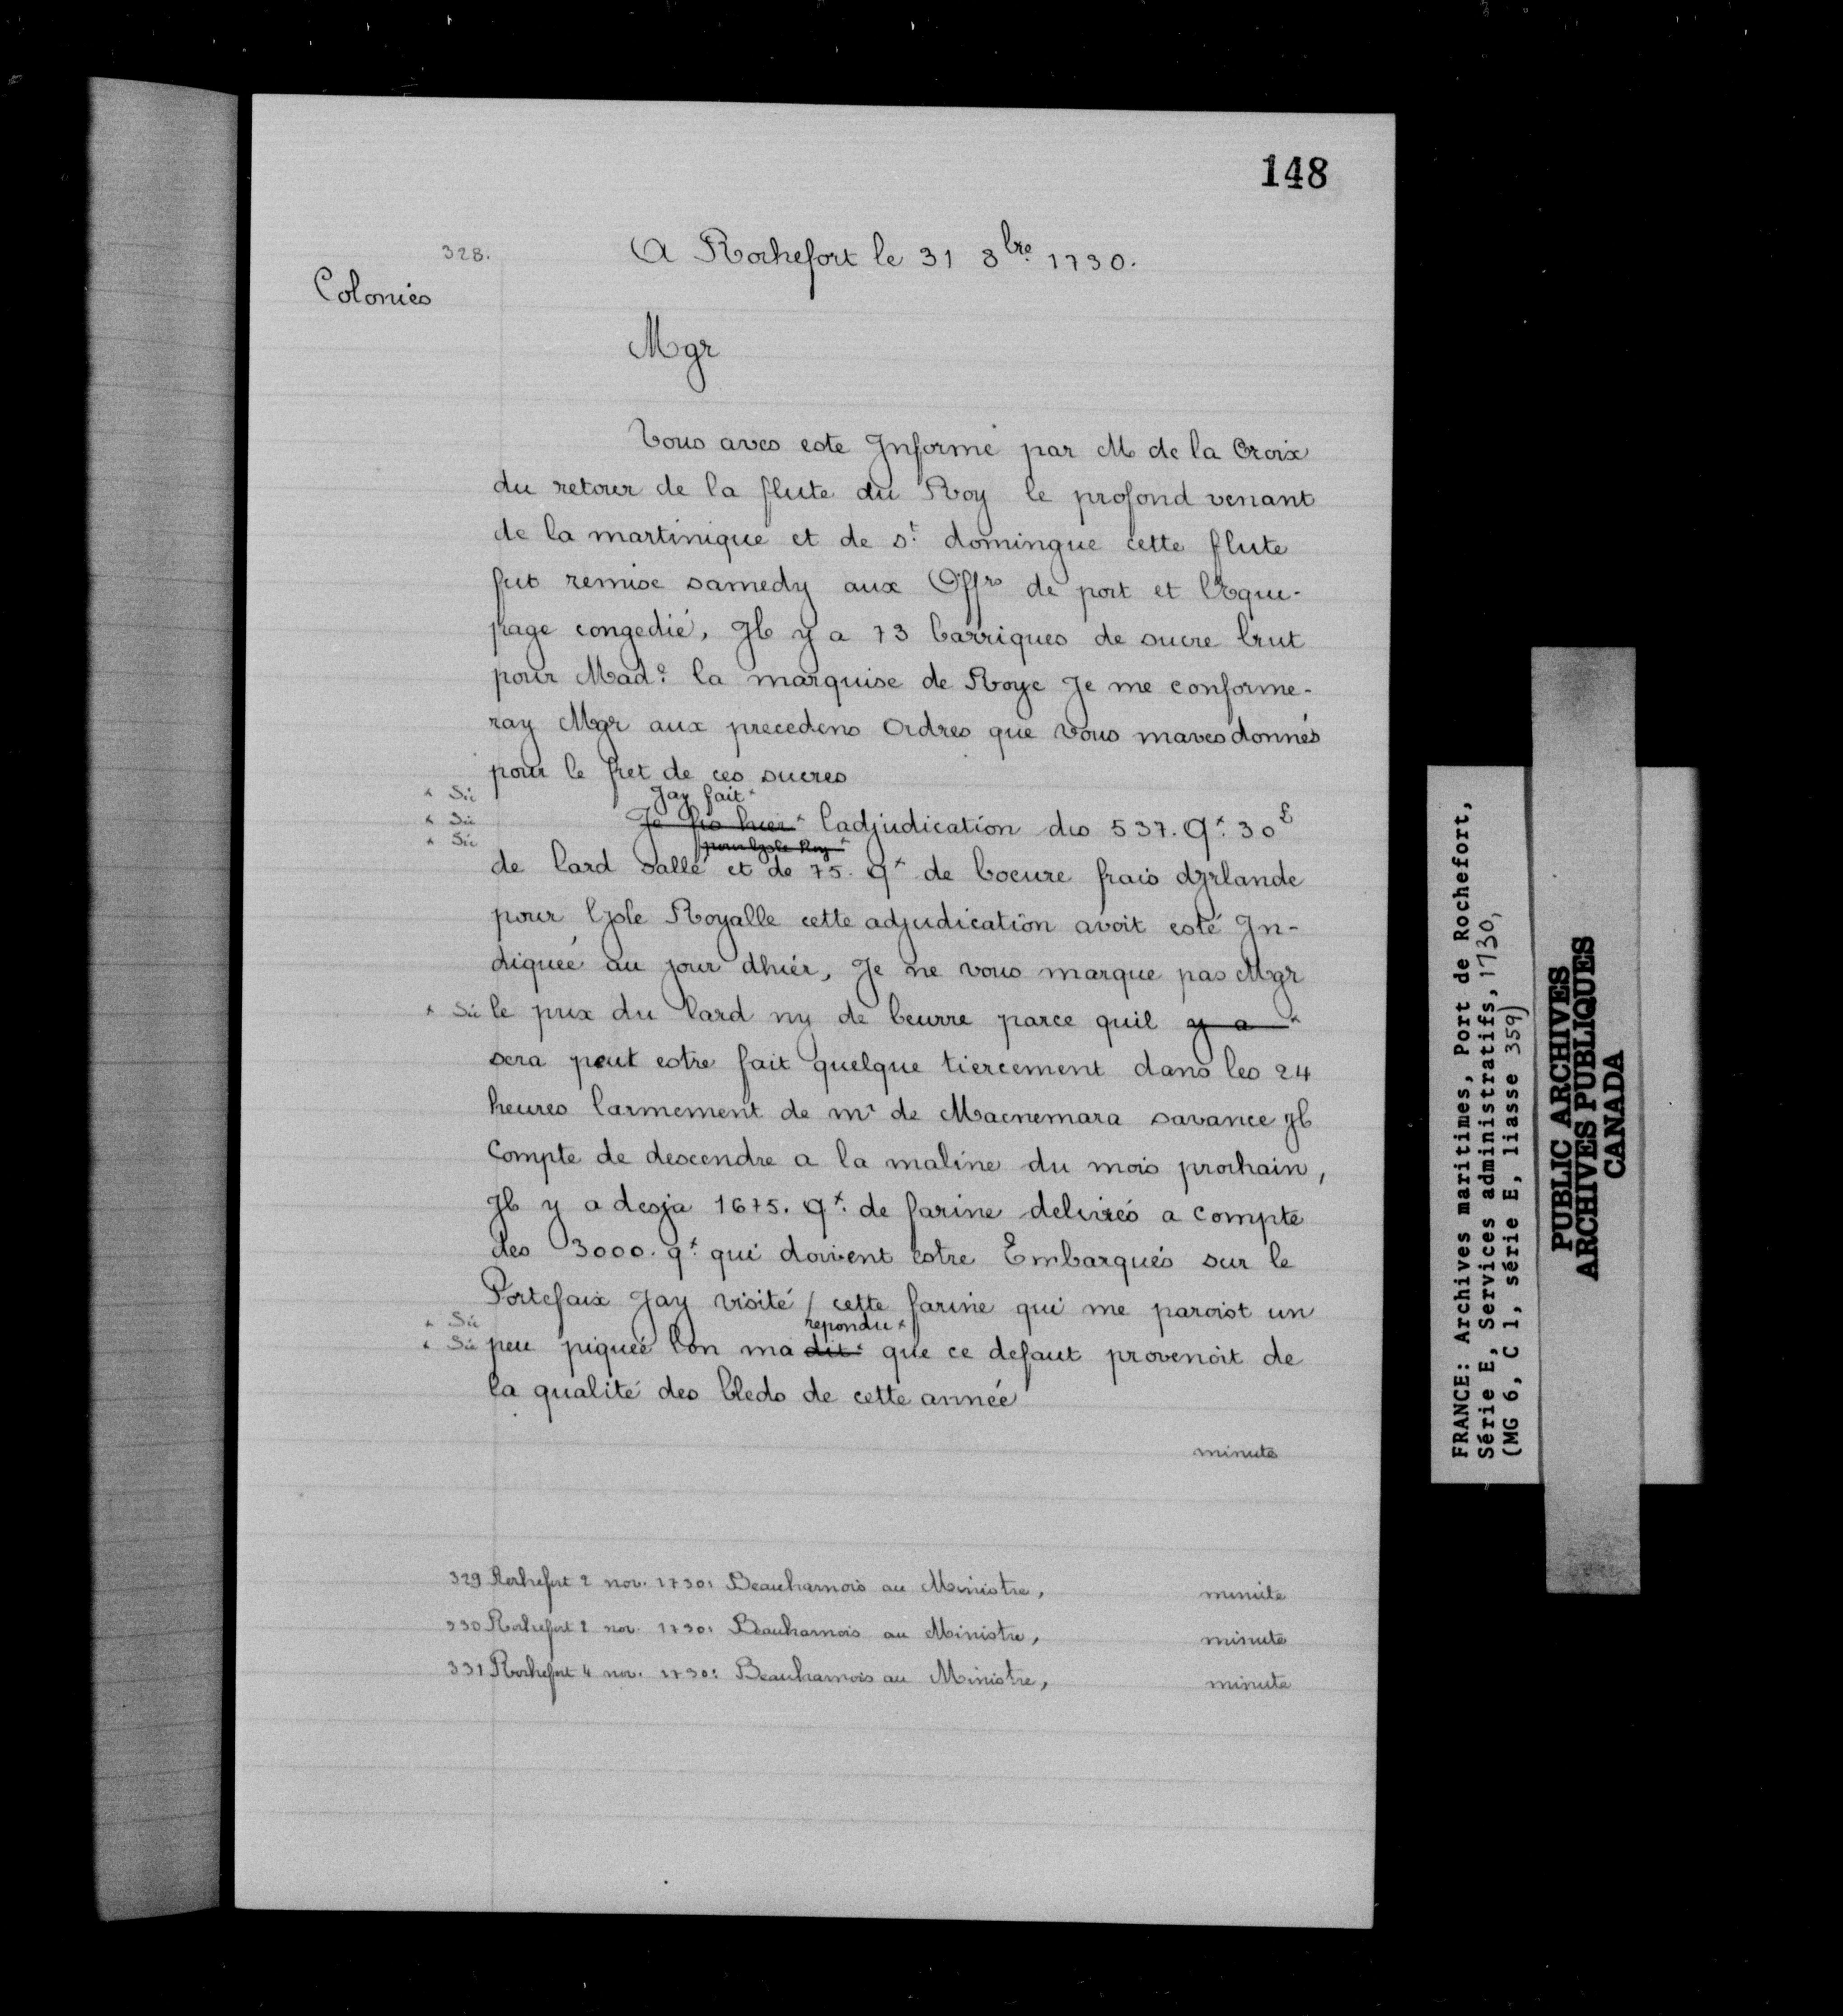 148
328. A Rochefort le 31 8bre 1730.
Colonies
Mgr
Vous aves este Informé par M de la Croix
du retour de la flute du Roy le profond venant
de la martinique et de st domingue cette flute
fut remise samedy aux Offrs de port et lEqui-
page congedié, Il y a 73 barriques de sucre brut
pour Made la marquise de Roye Je me conforme-
ray Mgr aux precedens Ordres que vous maves donnés
pour le fret de ces sucres
* Sic Jay fait*
* Sic Je fis hier* ladjudication des 537. qx 30£
* Sic pour lysle Roy*
de lard sallé et de 75. qx de boeure frais dyrlande
pour lysle Royalle cette adjudication avoit esté In-
diquée au jour dhier, Je ne vous marque pas Mgr
* Sic le prix du lard ny de beurre parce quil y a *
sera peut estre fait quelque tiercement dans les 24
heures larmement de mr de Macnemara savance Il
Compte de descendre a la maline du mois prochain,
Il y a desja 1675. qx de farine delivrés a compte
des 3000. qx qui doivent estre Embarqués sur le
Portefaix Jay visité / cette farine qui me paroist un
* Sic repondu*
* Sic peu piquée lon ma dit* que ce defaut provenoit de
la qualité des bleds de cette année
minute
329 Rochefort 2 nov. 1730: Beauharnois au Ministre, minute
330 Rochefort 2 nov. 1730: Beauharnois au Ministre, minute
331 Rochefort 4 nov. 1730: Beauharnois au Ministre, minute
FRANCE: Archives maritimes, Port de Rochefort,
Série E, Services administratifs, 1730,
(MG 6, C 1, série E, liasse 359)
PUBLIC ARCHIVES
ARCHIVES PUBLIQUES
CANADA